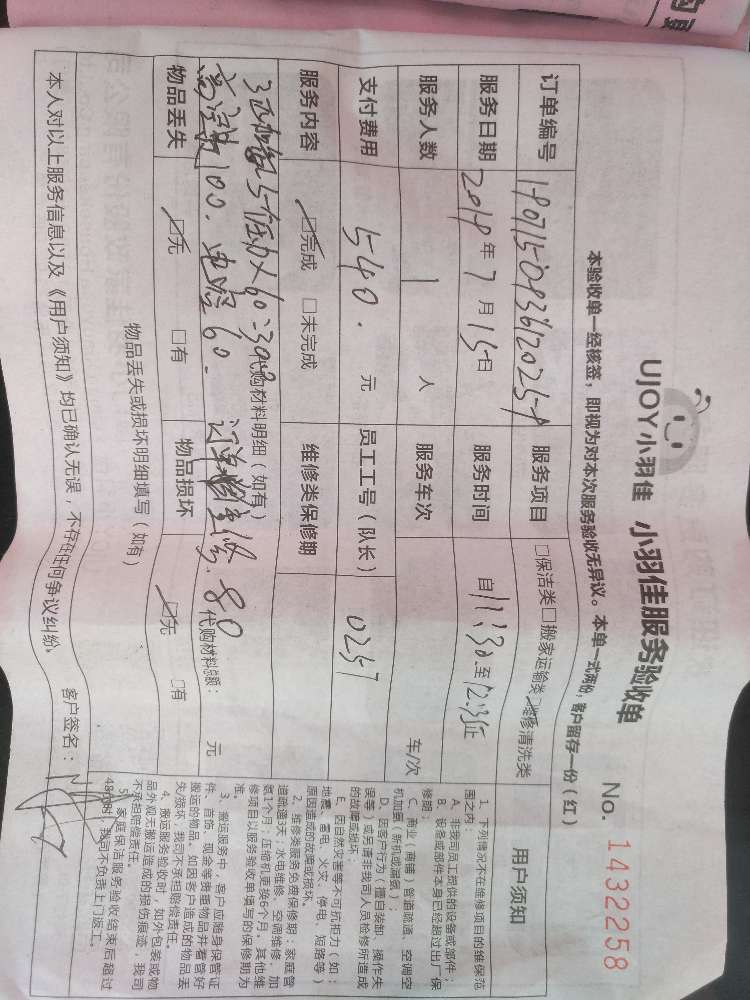 UJOY小羽佳 小羽佳服务验收单
No. 1432258
本验收单一经核签，即视为对本次服务验收无异议。本单一式两份，客户留存一份（红）
订单编号 服务项目 □保洁类 □搬家运输类 ☑维修清洗类
服务日期 2018年7月15日 服务时间 自11:30至12:35止
服务人数 1 人 服务车次 车/次
支付费用 540. 元 员工工号（队长） 0257
服务内容 ☑完成 □未完成 维修类保修期
代购材料明细（如有）
3匹加氟5个压力×60=300
高空费100. 电焊60. 80
代购材料总额： 元
物品丢失 ☑无 □有 物品损坏 ☑无 □有
物品丢失或损坏明细填写（如有）
本人对以上服务信息以及《用户须知》均已确认无误，不存在任何争议纠纷。 客户签名：
用户须知
1、下列情况不在维修项目的维保范围之内：
A、非我司员工提供的设备或部件；
B、设备或部件本身已经超过出厂保修期；
C、商业（商铺）管道疏通、空调空机加氟（新机或漏氟）
D、因客户行为（擅自装卸、操作失误等）或另请非我司人员检修所造成的故障或损坏；
E、因自然灾害等不可抗拒力（如：地震、雷电、火灾、停电、短路等）原因造成的故障或损坏。
2、维修类服务免费保修期：家庭管道疏通3天；水电维修、空调维修、加氟1个月；压缩机更换6个月。其他维修项目以服务验收单填写的保修期为准。
3、搬运服务中，客户应随身保管证件、首饰、现金等贵重物品并看管好搬运的物品。如因客户造成的物品丢失/损坏，我司不承担赔偿责任。
4、搬运服务验收时，如外包装或物品外观无搬运造成的损伤痕迹，我司不承担赔偿责任。
5、家庭保洁服务验收结束后超过48小时，我司不负责上门返工。